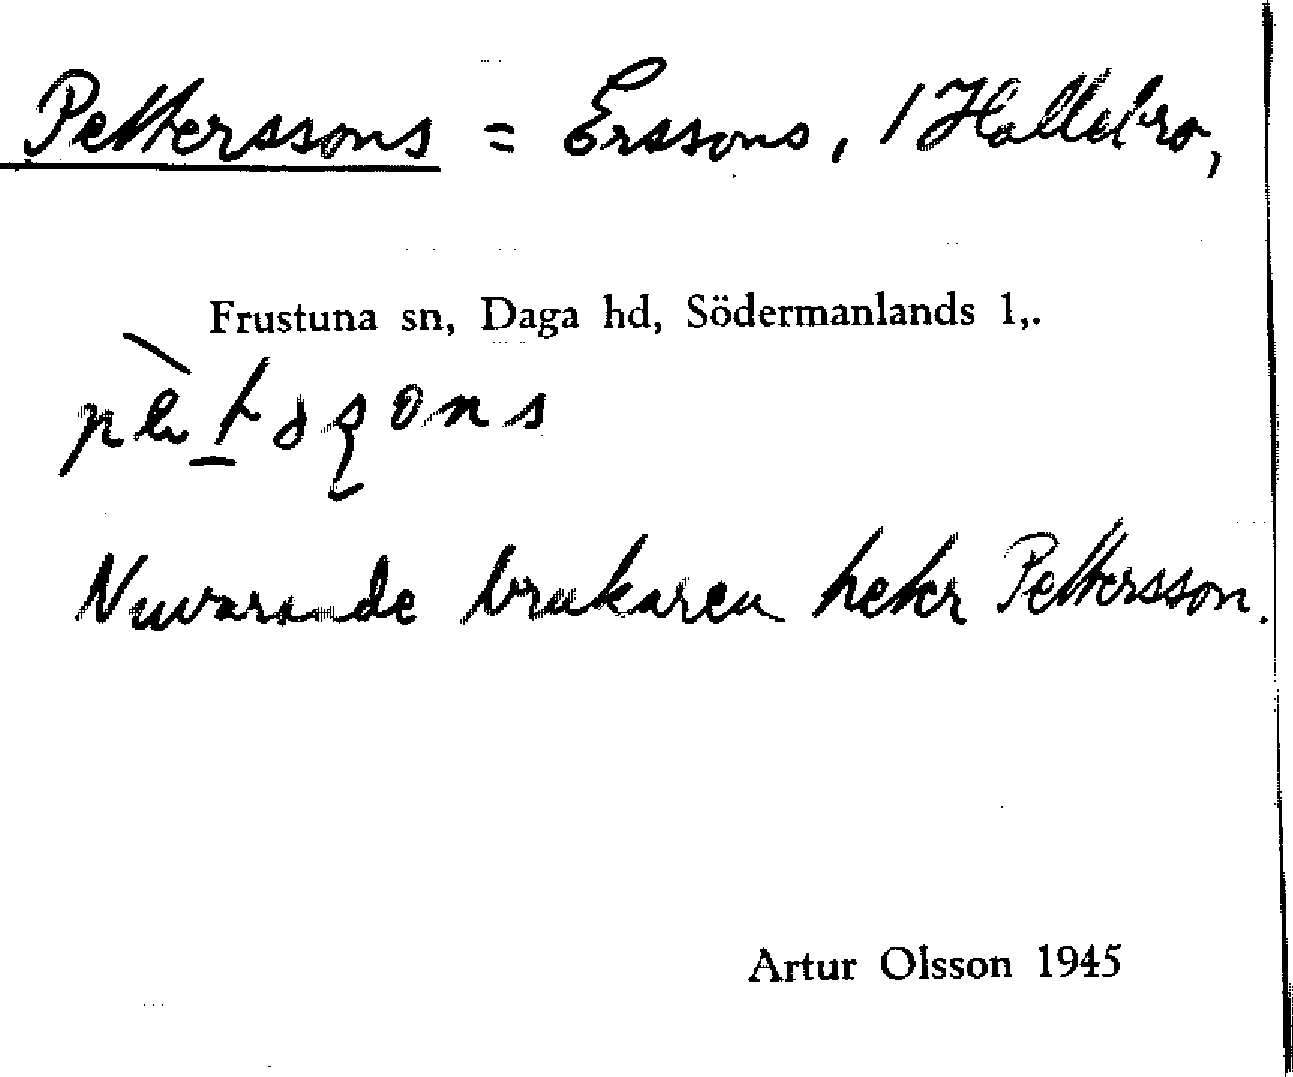 Pettersson​s = Erssons, / Hallebro,
Frustuna sn, Daga hd, Södermanlands l,.
Nuvarande brukaren heter Pettersson.
Artur Olsson 1945